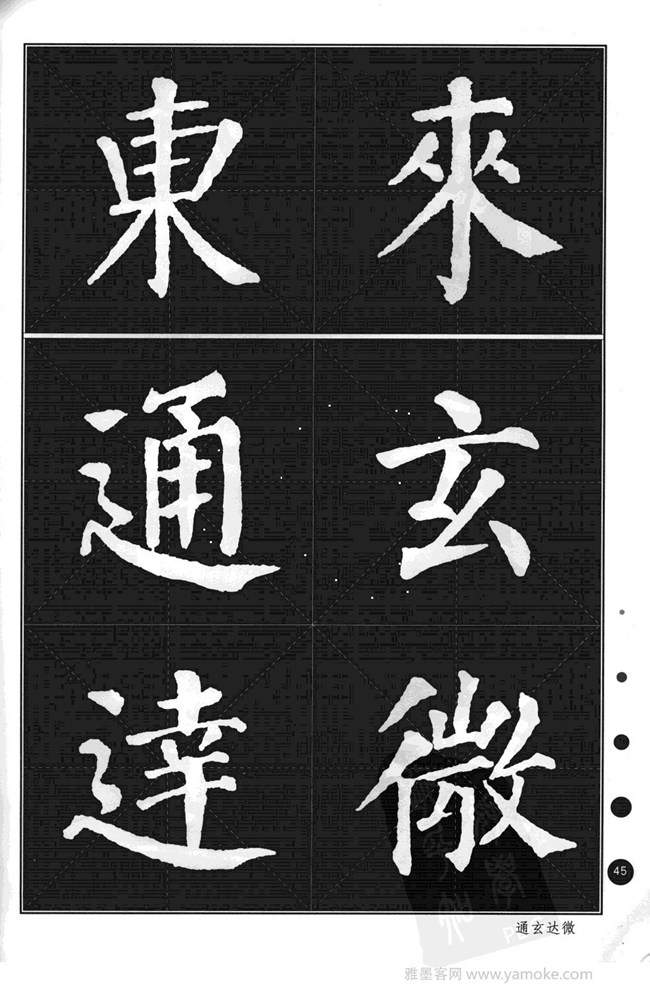 東來
通玄
達微
45
通玄达微
雅墨客网 www.yamoke.com